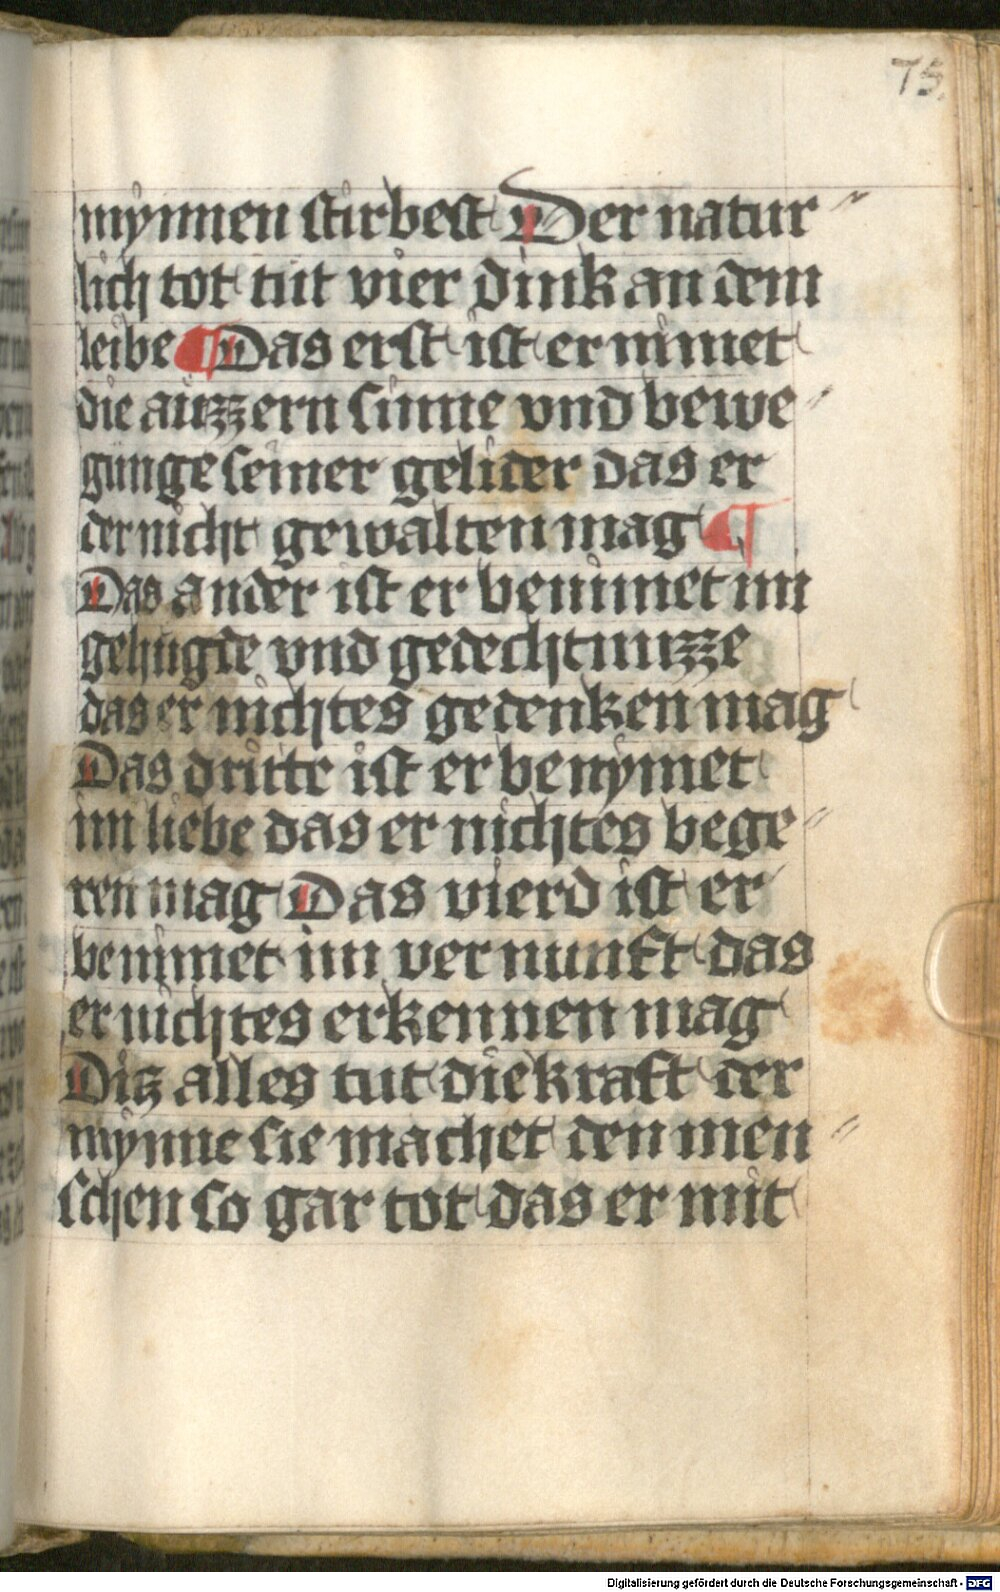 75.
mynnen stirbest Der natur〃
lich tot tut vier dink an dem
leibe ¶ Das erst ist er nimet
die auzzern sinne vnd bewe〃
gunge seiner gelider das er
der nicht gewalten mag ¶
Das ander ist er benimet im
gehugde vnd gedechtnuzze
das er nichtes gedenken mag
Das dritte ist er benymet
im liebe das er nichtes bege〃
ren mag Das vierd ist er
benimet im vernunft das
er nichtes erkennen mag
Ditz alles tut die kraft der
mynne sie machet den men〃
schen so gar tot das er mit
Digitalisierung gefördert durch die Deutsche Forschungsgemeinschaft - DFG